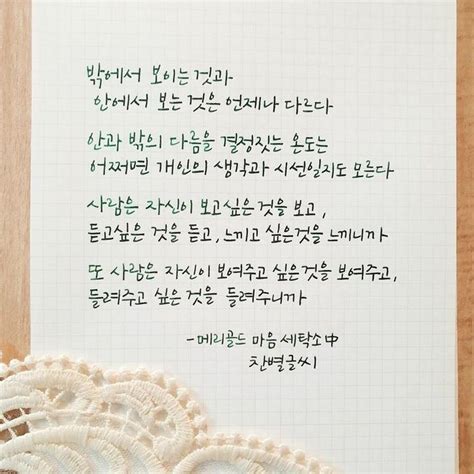 밖에서 보이는 것과
안에서 보는 것은 언제나 다르다
안과 밖의 다름을 결정짓는 온도는
어쩌면 개인의 생각과 시선일지도 모른다
사람은 자신이 보고싶은 것을 보고,
듣고싶은 것을 듣고, 느끼고 싶은것을 느끼니까
또 사람은 자신이 보여주고 싶은것을 보여주고,
들려주고 싶은 것을 들려주니까
-메리골드 마음 세탁소 中
찬별글씨